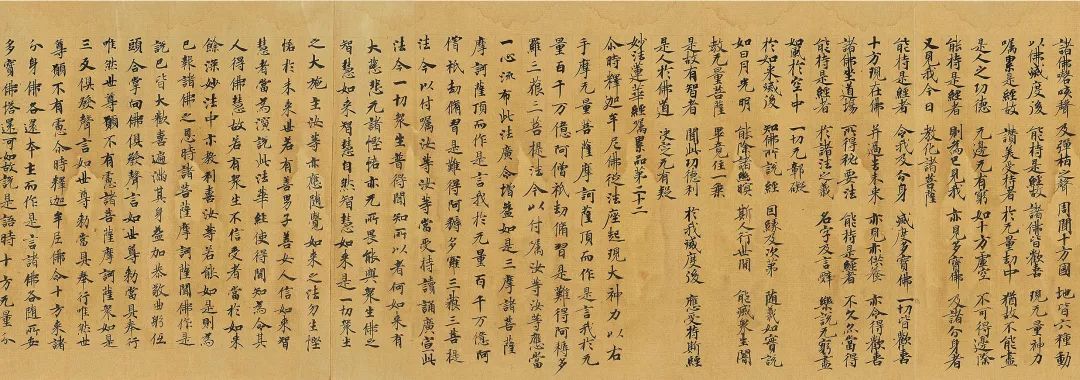 諸佛謦咳聲 及彈指之聲 周聞十方國 地皆六種動
以佛滅度後 能持是經故 諸佛皆歡喜 現无量神力
囑累是經故 讚美受持者 於无量劫中 猶故不能盡
是人之功德 无邊无有窮 如十方虛空 不可得邊際
能持是經者 則為已見我 亦見多寶佛 及諸分身者
又見我今日 教化諸菩薩
能持是經者 令我及分身 滅度多寶佛 一切皆歡喜
十方現在佛 并過去未來 亦見亦供養 亦令得歡喜
諸佛坐道場 所得祕要法 能持是經者 不久亦當得
能持是經者 於諸法之義 名字及言辭 樂說无窮盡
如風於空中 一切无鄣礙
於如來滅後 知佛所說經 因緣及次第 隨義如實說
如日月光明 能除諸幽冥 斯人行世間 能滅眾生闇
教无量菩薩 畢竟住一乘
是故有智者 聞此功德利 於我滅度後 應受持斯經
是人於佛道 決定无有疑
妙法蓮華經囑累品第二十二
尒時釋迦牟尼佛從法座起現大神力以右
手摩无量菩薩摩訶薩頂而作是言我於无
量百千万億阿僧祇劫脩習是難得阿耨多
羅三藐三菩提法今以付囑汝等汝等應當
一心流布此法廣令增益如是三摩諸菩薩
摩訶薩頂而作是言我於无量百千万億阿
僧祇劫脩習是難得阿耨多羅三藐三菩提
法今以付囑汝等汝等當受持讀誦廣宣此
法令一切眾生普得聞知所以者何如來有
大慈悲无諸慳悋亦无所畏能與眾生佛之
智慧如來智慧自然智慧如來是一切眾生
之大施主汝等亦應隨學如來之法勿生慳
悋於未來世若有善男子善女人信如來智
慧者當為演說此法華經使得聞知為令其
人得佛慧故若有眾生不信受者當於如來
餘深妙法中示教利喜汝等若能如是則為
已報諸佛之恩時諸菩薩摩訶薩聞佛作是
說已皆大歡喜遍滿其身益加恭敬曲躬低
頭合掌向佛俱發聲言如世尊勅當具奉行
唯然世尊願不有慮諸菩薩摩訶薩眾如是
三反俱發聲言如世尊勅當具奉行唯然世
尊願不有慮尒時釋迦牟尼佛令十方來諸
分身佛各還本土而作是言諸佛各隨所安
多寶佛塔還可如故說是語時十方无量分